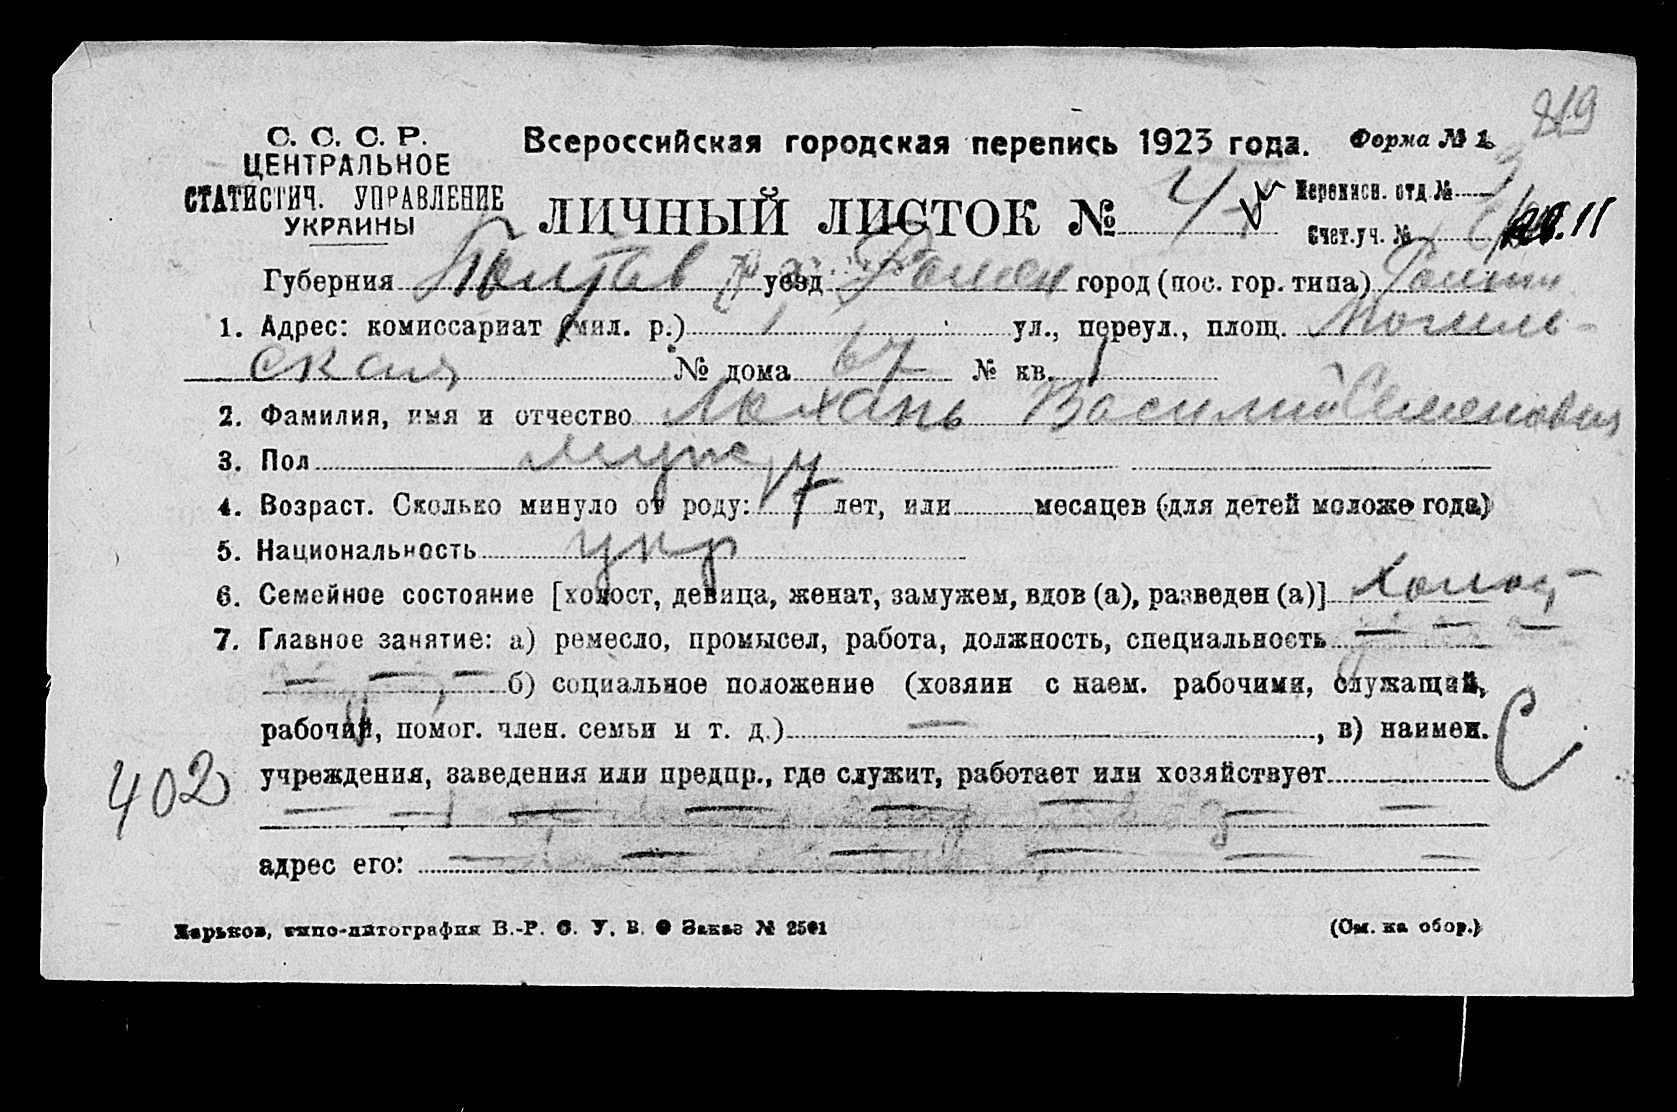 819
С. С. С. Р.
ЦЕНТРАЛЬНОЕ
СТАТИСТИЧ. УПРАВЛЕНИЕ
УКРАИНЫ
Всероссийская городская перепись 1923 года. Форма № 1.
ЛИЧНЫЙ ЛИСТОК № 4
Переписн. отд. №
Счет. уч. № 11
Губерния Полтав уезд Ромен город (пос. гор. типа) Ромны
1. Адрес: комиссариат (мил. р.) 1 ул., переул., площ. Могиль-
ская № дома 67 № кв. 1
2. Фамилия, имя и отчество Лахань Василий Семенович
3. Пол муж
4. Возраст. Сколько минуло от роду: 17 лет, или месяцев (для детей моложе года)
5. Национальность укр
6. Семейное состояние [холост, девица, женат, замужем, вдов (а), разведен (а)] холост
7. Главное занятие: а) ремесло, промысел, работа, должность, специальность — — —
— — — б) социальное положение (хозяин с наем. рабочими, служащий,
рабочий, помог. член. семьи и т. д.) — , в) наимен. С
402 учреждения, заведения или предпр., где служит, работает или хозяйствует
— — — — — — — —
адрес его: — — — — — —
Харьков, типо-литография В.-Р. С. У. В. О Заказ № 2501 (См. на обор.)